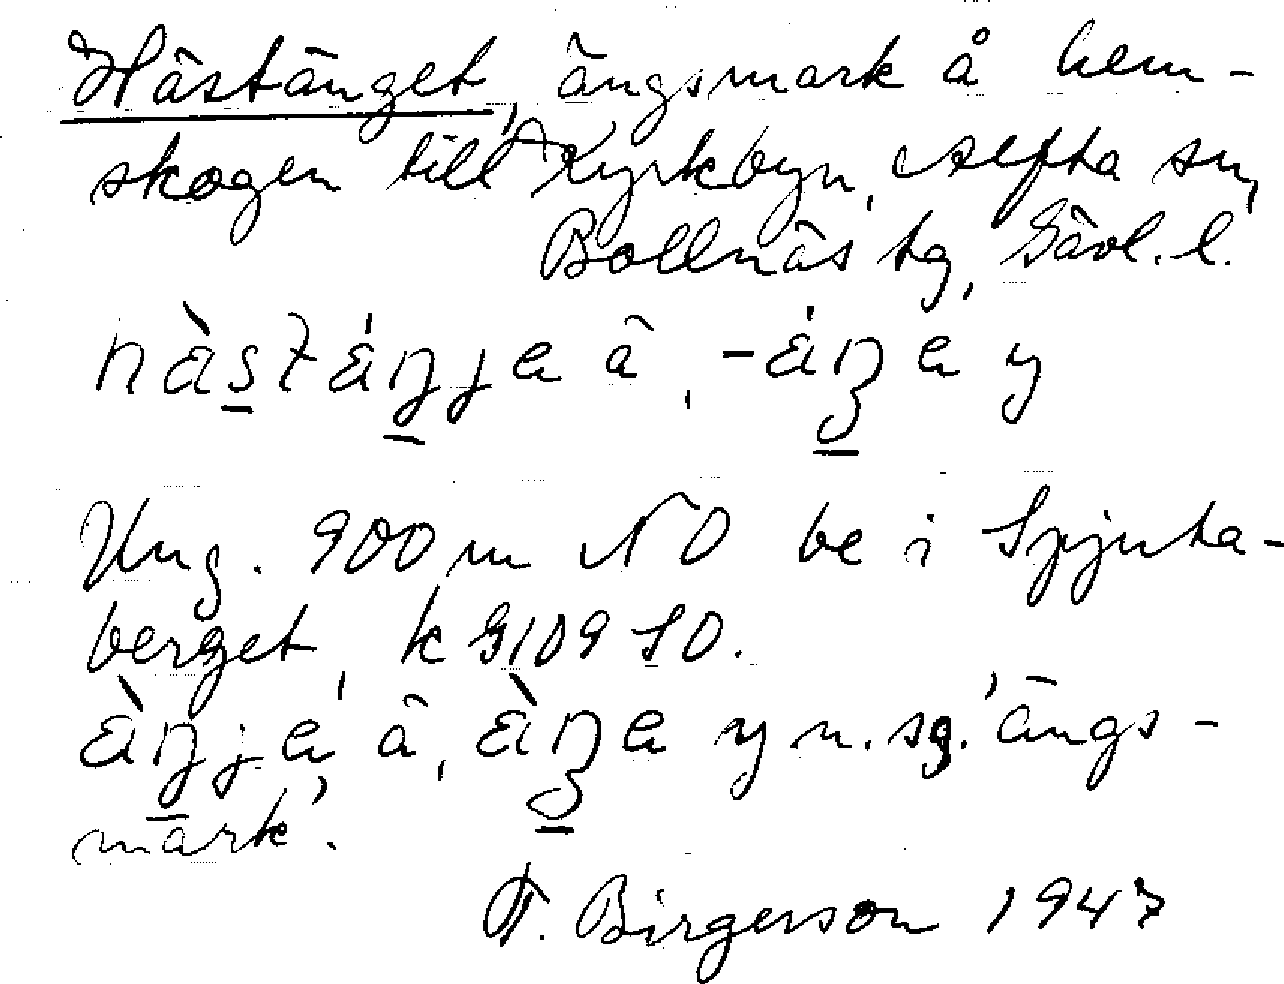 Hästänget, ängsmark å hem-
skogen till Kyrkbyn, Alfta sn,
Bollnäs tg, Gävl. l.
hàstáŋje ä, -áŋe y
Ung. 900 m NO be i Spjuta-
berget, k G109 SO.
àŋje, ä, àŋe y n. sg. 'ängs-
mark'.
F. Birgerson 1947